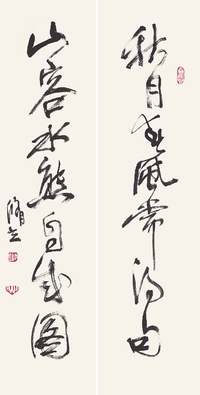 秋月春风常得句
山容水态自成图